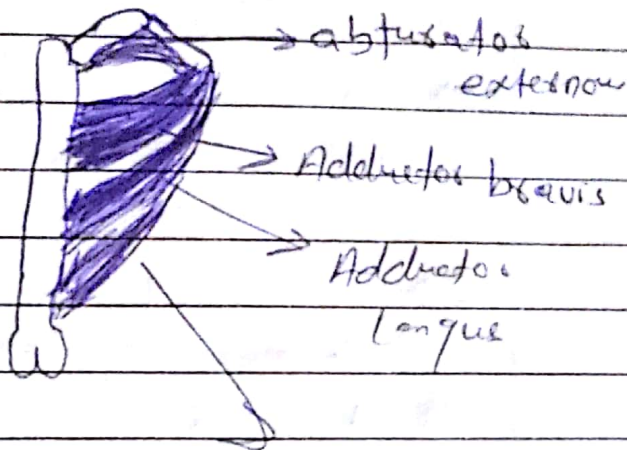 abturator
externou
Adductor bravis
Adductor
longus